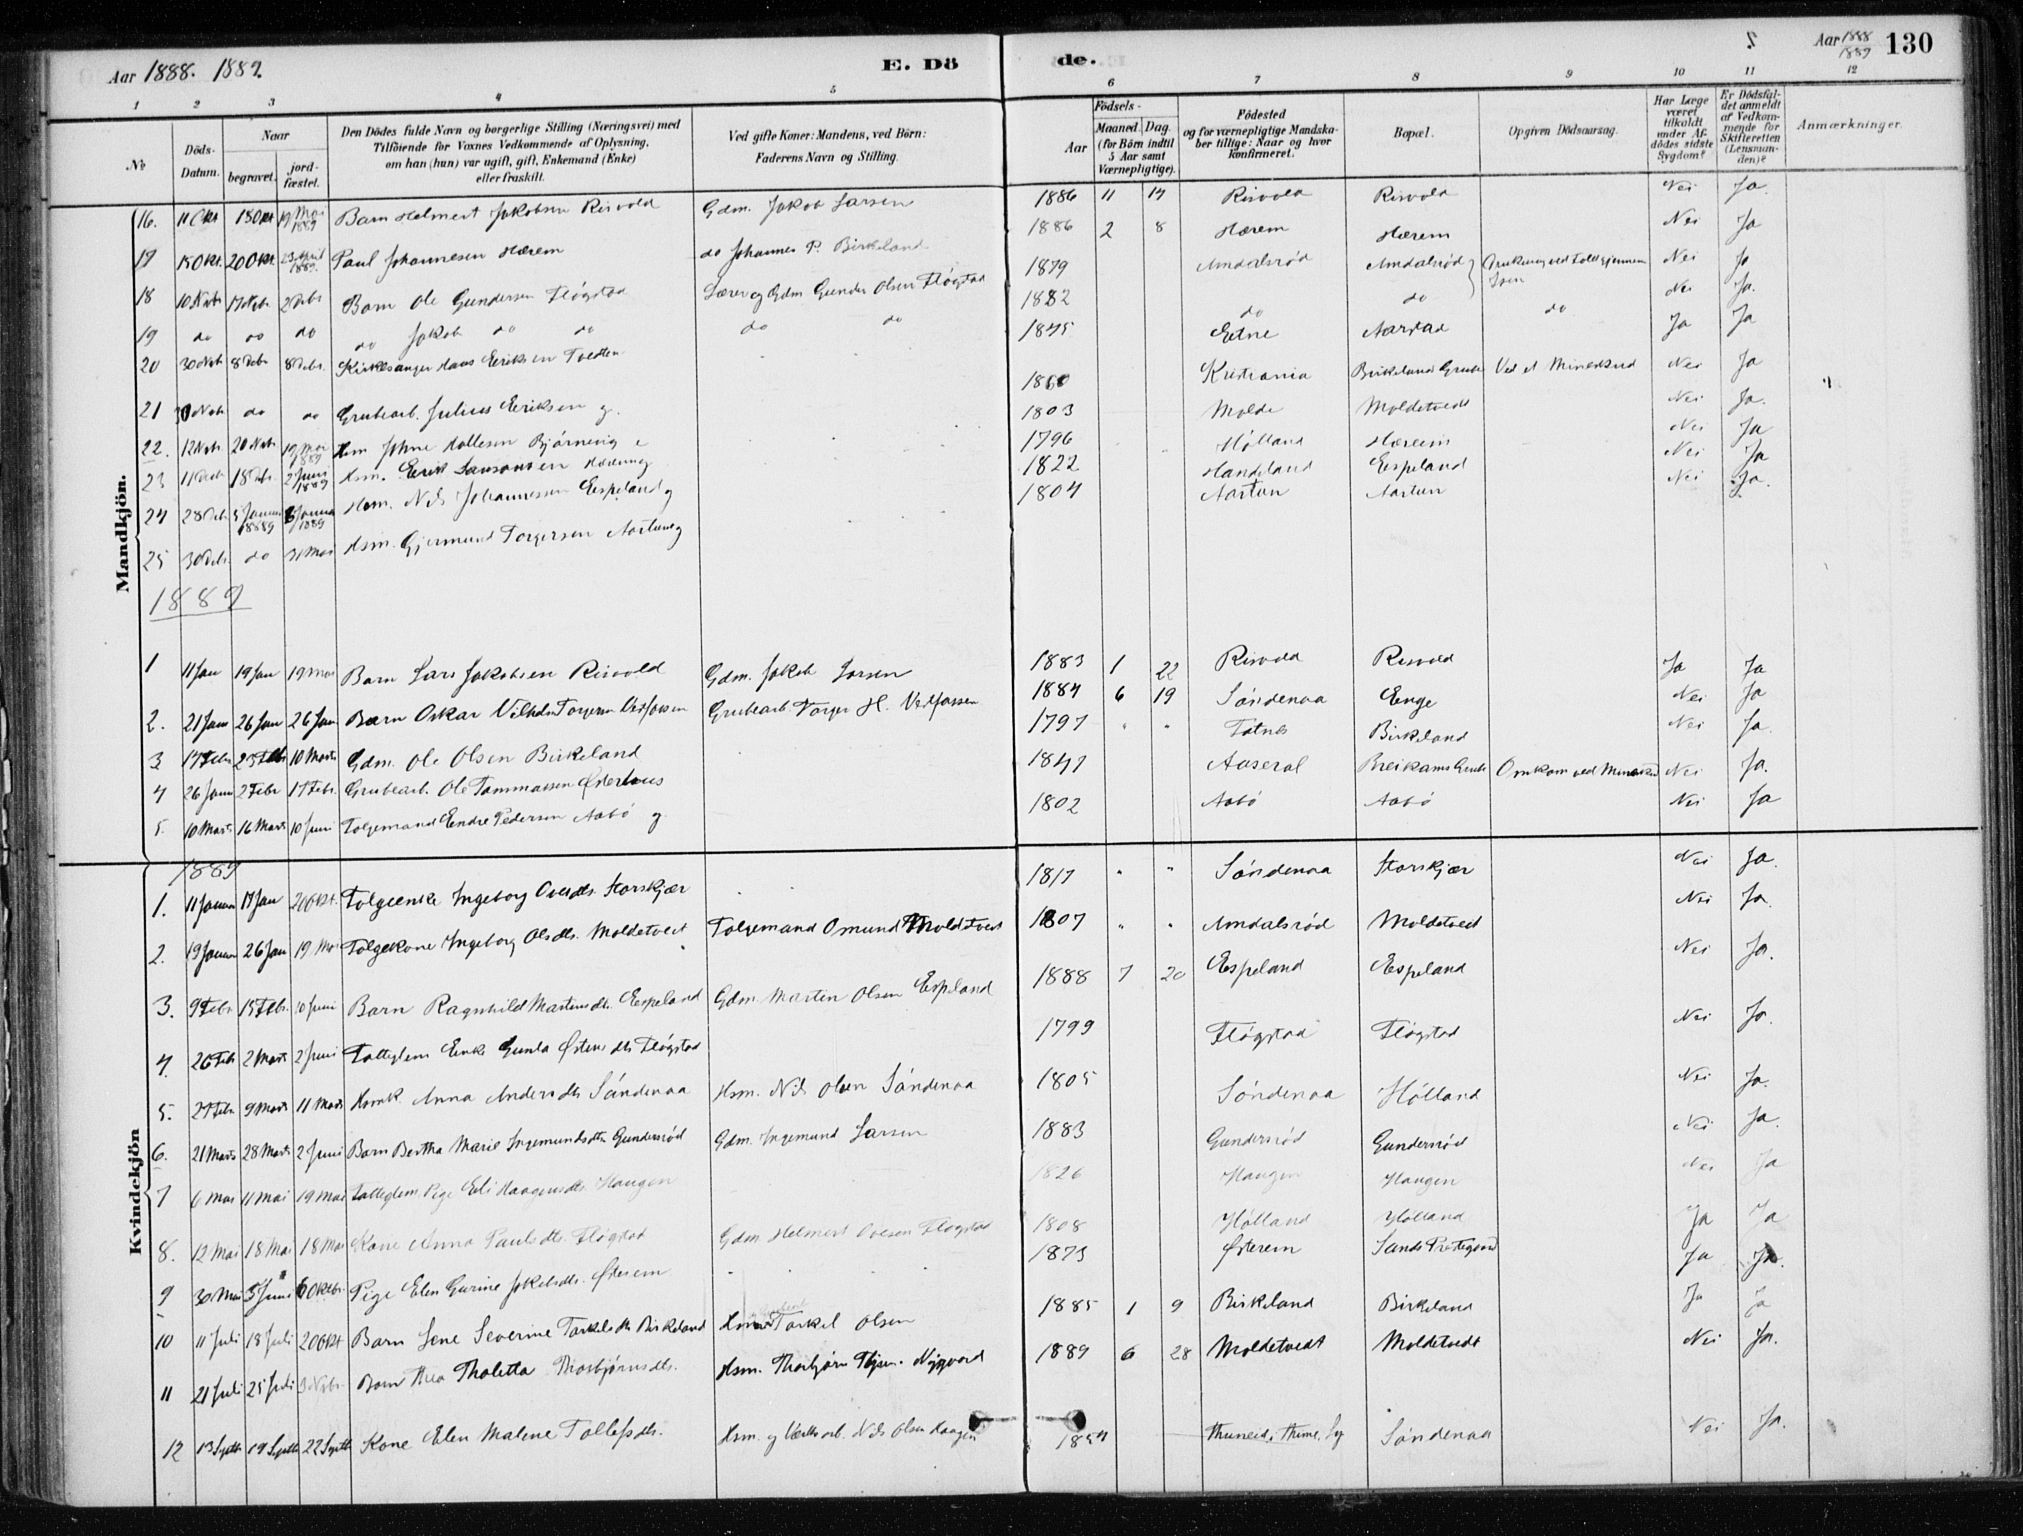 Aar 1888. 1889.
E. Dö
de.
Aar 1888 1889
130
1 2 3 4 5 6 7 8 9 10 11 12
№
Döds-Datum.
Naar
begravet.
jord-fæstet.
Den Dödes fulde Navn og borgerlige Stilling (Næringsvei) med Tilföiende for Voxnes Vedkommende af Oplysning, om han (hun) var ugift, gift, Enkemand (Enke) eller fraskilt.
Ved gifte Koner: Mandens, ved Börn: Faderens Navn og Stilling.
Födsels-
Aar
Maaned.
Dag.
(for Börn indtil 5 Aar samt Værnepligtige).
Födested og for værnepligtige Mandskaber tillige: Naar og hvor konfirmeret.
Bopæl.
Opgiven Dödsaarsag.
Har Læge været tilkaldt under Afdödes sidste Sygdom?
Er Dödsfaldet anmeldt af Vedkommende for Skifteretten (Lensmanden)?
Anmærkninger.
Mandkjön.
16. 11 Okt 18 Okt 19 Mai 1889 Barn Helmert Jakobsen Risvold Gdm. Jakob Larsen 1886 11 14 Risvold Risvold Nei Ja.
17 15 Okt. 20 Okt. 23 April 1889. Paul Johannesen Hærem do Johannes P. Birkeland 1886 2 8 Hærem Hærem Nei Ja
18 10 Novbr 17 Novbr 2 Debr Barn Ole Gundersen Fløgstad Lærer og Gdm Gunder Olsen Fløgstad 1879 Amdalsrød Amdalsrød Drukning ved Fald gjennem Isen Nei Ja
19 do do do do Jakob do do do do 1882 do do do Nei Ja.
20 30 Novb 8 Debr 8 Debr. Kirkesanger Hans Eriksen Tvedten 1845 Etne Aarstad Ja Ja
21 30 Novb. do do Grubearb. Julius Eriksen g. 1860 Kristiania Birkelands Grube Ved et Mineskud Nei Ja
22. 12 Novb. 20 Novb. 19 Mai 1889 Hsm Johne Hallesen Bjørnevig e 1803 Molde Moldetvedt Nei Ja.
23 11 Decb 18 Debr. 2 Juni 1889 Hsm. Erik Samsonsen Hærem g 1796 Hølland Hærem Nei Ja
24 28 Deb. 5 Januar 1889 6 Januar 1889 Hsm. Nils Johannessen Espeland g 1822 Handeland Espeland Nei Ja
25 30 Debr. do 31 Mai Hsm. Gjermund Torgersen Aartun g 1804 Aartun Aartun Nei Ja.
1889
1 11 Jan 19 Jan 19 Mai Barn Lars Jakobsen Risvold Gdm. Jakob Larsen 1883 1 22 Risvold Risvold Ja Ja
2. 21 Jan 26 Jan 26 Jan Barn Oskar Vilhelm Torgersen Vestfossen Grubearb. Torger H. Vestfossen 1884 6 19 Søndenaa Enge Nei Ja
3 17 Febr 23 Febr 10 Marts Gdm. Ole Olsen Birkeland 1797 " " Totnes Birkeland Nei Ja.
4 26 Jan 2 Febr 17 Febr. Grubearb. Ole Tommassen Østerhus 1841 Aaseral Breikams Grube Omkom ved Mineskud Nei Ja.
5. 10 Marts 16 Marts 10 Juni Folgemand Endre Pedersen Aabø g 1802 Aabø Aabø Nei Ja
Kvindekjön
1889
1. 11 Januar 17 Jan 20 Okt. Folgeenke Ingeborg Ovesdtr. Storskjær 1817 " " Søndenaa Storskjær Nei Ja.
2. 19 Januar 26 Jan 19 Mai Folgekone Ingeborg Olsdtr. Moldetvedt Folgemand Omund Moldetvedt 1807 " " Amdalsrød Moldetvedt Nei Ja.
3. 9 Febr 15 Febr. 10 Juni Barn Ragnhild Martensdtr. Espeland Gdm. Marten Olsen Espeland 1888 7 20 Espeland Espeland Nei Ja.
4. 26 Feb 2 Marts 2 Juni Fattiglem Enke Gunla Østensdtr Fløgstad 1799 Fløgstad Fløgstad Nei Ja.
5. 27 Febr 9 Marts 11 Marts Hsmk. Anna Andersdtr Søndenaa Hsm. Nils Olsen Søndenaa 1805 Søndenaa Hølland Nei Ja.
6. 21 Marts 28 Marts 2 Juni Barn Bertha Marie Ingemundsdtr. Gundersrød Gdm. Ingemund Larsen 1883 Gundersrød Gundersrød Nei Ja.
7 6 Mai 11 Mai 19 Mai Fattiglem Pige Eli Haagensdtr. Haugen 1826 Haugen Haugen Nei Ja
8. 12 Mai 18 Mai 18 Mai Kone Anna Paulsdtr. Fløgstad Gdm Helmert Ovesen Fløgstad 1808 Hølland Hølland Ja Ja
9 30 Mai 5 Juni 6 Oktbr. Pige Elen Gurine Jakobsdtr. Østerem 1873 Østerem Sands Prestegaard Ja Ja.
10 11 Juli 18 Juli 20 Okt Barn Lene Severine Torkelsdtr Birkeland Torkel Olsen 1885 1 9 Birkeland Birkeland Ja Ja
11 21 Juli 25 Juli 3 Novbr. Barn Thea Tholetta Thorbjørnsdtr. Hsm. Thorbjørn Thjsen. Nygaard 1889 6 28 Moldetvedt Moldetvedt Nei Ja.
12 13 Septb 19 Septb 22 Septb Kone Elen Malene Tollefsdtr. Hsm. og Værksarb. Nils Olsen Haagen 1854 Thime Søndenaa Nei Ja.